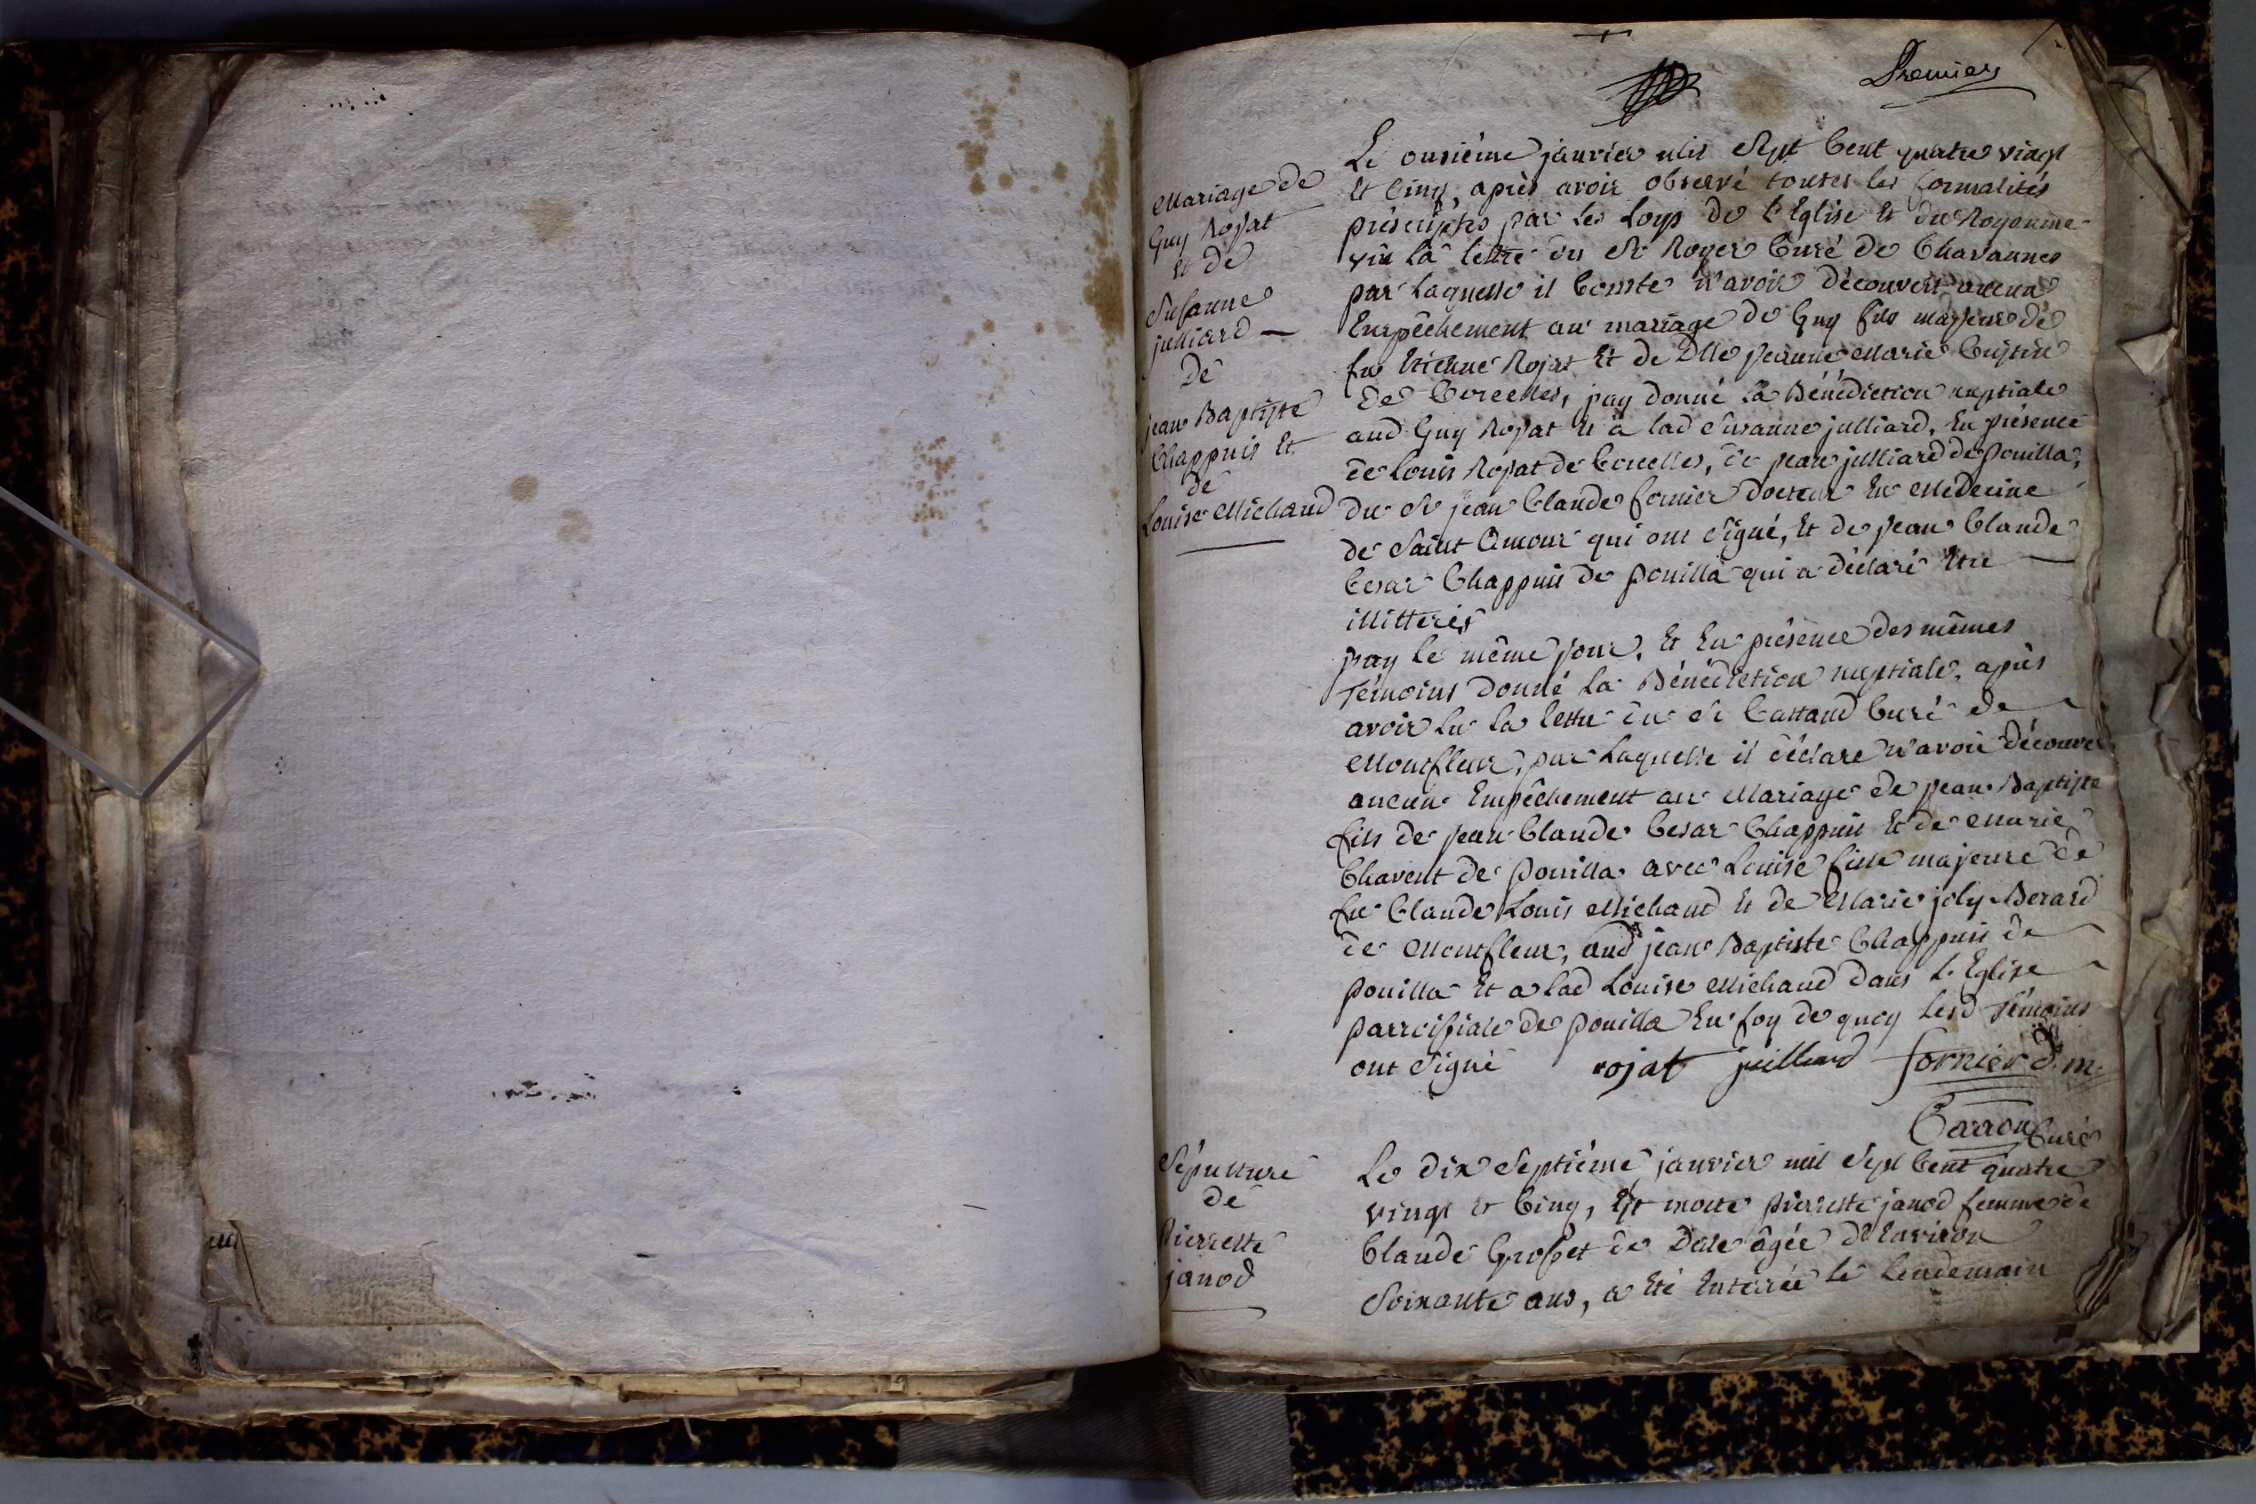 Premier
Mariage de
Guy Rojat
et de
Susanne
julliard —
De
jean Baptiste
Chappuis Et
de
Louise Michaud
Le onzième janvier mil Sept Cent quatre vingt
Et Cinq, après avoir observé toutes les formalités
préscriptes par les Loys de l'Eglise Et du Royaume
vû la lettre du Sr Royer Curé de Chavannes
par Laquelle il Conste n'avoir découvert aucun
Empêchement au mariage de Guy fils majeur de
feu Etienne Rojat Et de Dlle jeanne Marie
de Corcelles, jay donné la Bénédiction nuptiale
aud Guy Rojat Et à lad Susanne julliard, En présence
de Louis Rojat de Corcelles, de jean julliard de Pouilla,
du Sr jean Claude fornier Docteur En Medecine
de Saint Amour qui ont signé, Et de jean Claude
Cesar Chappuis de Pouilla qui a déclaré Etre —
illitteré
jay le même jour, Et En présence des mêmes
Témoins donné la Bénédiction nuptiale, après
avoir lu la lettre du Sr Cattand Curé de
Montfleur, par Laquelle il déclare n'avoir découver
aucun Empêchement au Mariage de jean Baptiste
fils de jean Claude Cesar Chappuis Et de Marie
Chavent de Pouilla avec Louise fille majeure de
feu Claude Louis Michaud Et de Marie joly Berard
de Montfleur, aud jean Baptiste Chappuis de
Pouilla Et a lad Louise Michaud dans L'Eglise
parroissiale de Pouilla En foy de quoy lesd Témoins
ont signé rojat juilliard fornier d. m.
Carron Curé
Sépulture
de
Pierrette
janod
Le dix Septième janvier mil Sept Cent quatre
vingt Et Cinq, Est morte pierrette janod femme de
Claude Grosset de Dele âgée d'Environ
Soixante ans, a Eté Enterrée le Lendemain